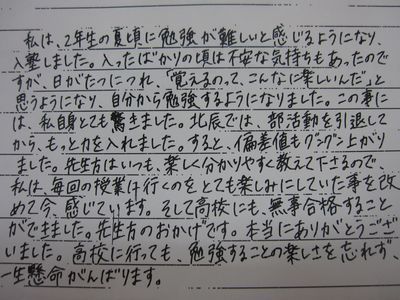 私は、2年生の夏頃に勉強が難しいと感じるようになり、
入塾しました。入ったばかりの頃は不安な気持ちもあったので
すが、日がたつにつれ、「覚えるのって、こんなに楽しいんだ」と
思うようになり、自分から勉強するようになりました。この事に
は、私自身とても驚きました。北辰では、部活動を引退して
から、もっと力を入れました。すると、偏差値もグングン上がり
ました。先生方はいつも、楽しく分かりやすく教えて下さるので、
私は、毎回の授業は行くのをとても楽しみにしていた事を改
めて今、感じています。そして高校にも、無事合格すること
ができました。先生方のおかげです。本当にありがとうござ
いました。高校に行っても、勉強することの楽しさを忘れず、
一生懸命がんばります。